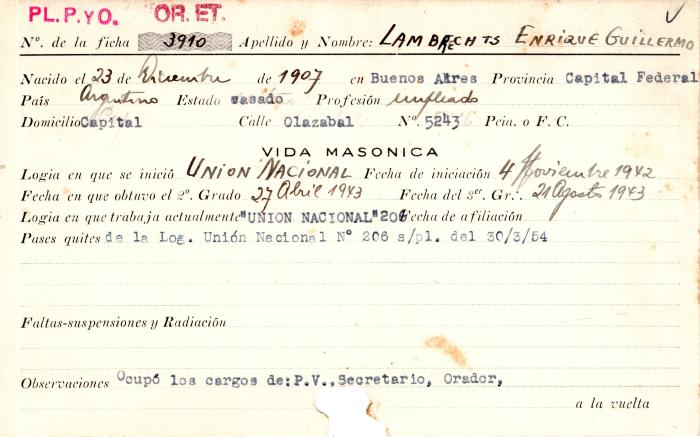 PL. P. y O. OR. ET.
Nº. de la ficha 3910 Apellido y Nombre: LAMBRECHTS ENRIQUE GUILLERMO
Nacido el 23 de Diciembre de 1907 en Buenos Aires Provincia Capital Federal
País Argentino Estado casado Profesión empleado
Domicilio Capital Calle Olazabal Nº. 5243 Pcia. o F. C.
VIDA MASONICA
Logia en que se inició UNION NACIONAL Fecha de iniciación 4 Noviembre 1942
Fecha en que obtuvo el 2º. Grado 27 Abril 1943 Fecha del 3er. Gr.: 21 Agosto 1943
Logia en que trabaja actualmente "UNION NACIONAL" 206 Fecha de afiliación
Pases quites de la Log. Unión Nacional Nº 206 s/pl. del 30/3/54
Faltas-suspensiones y Radiación
Observaciones Ocupó los cargos de: P.V., Secretario, Orador,
a la vuelta